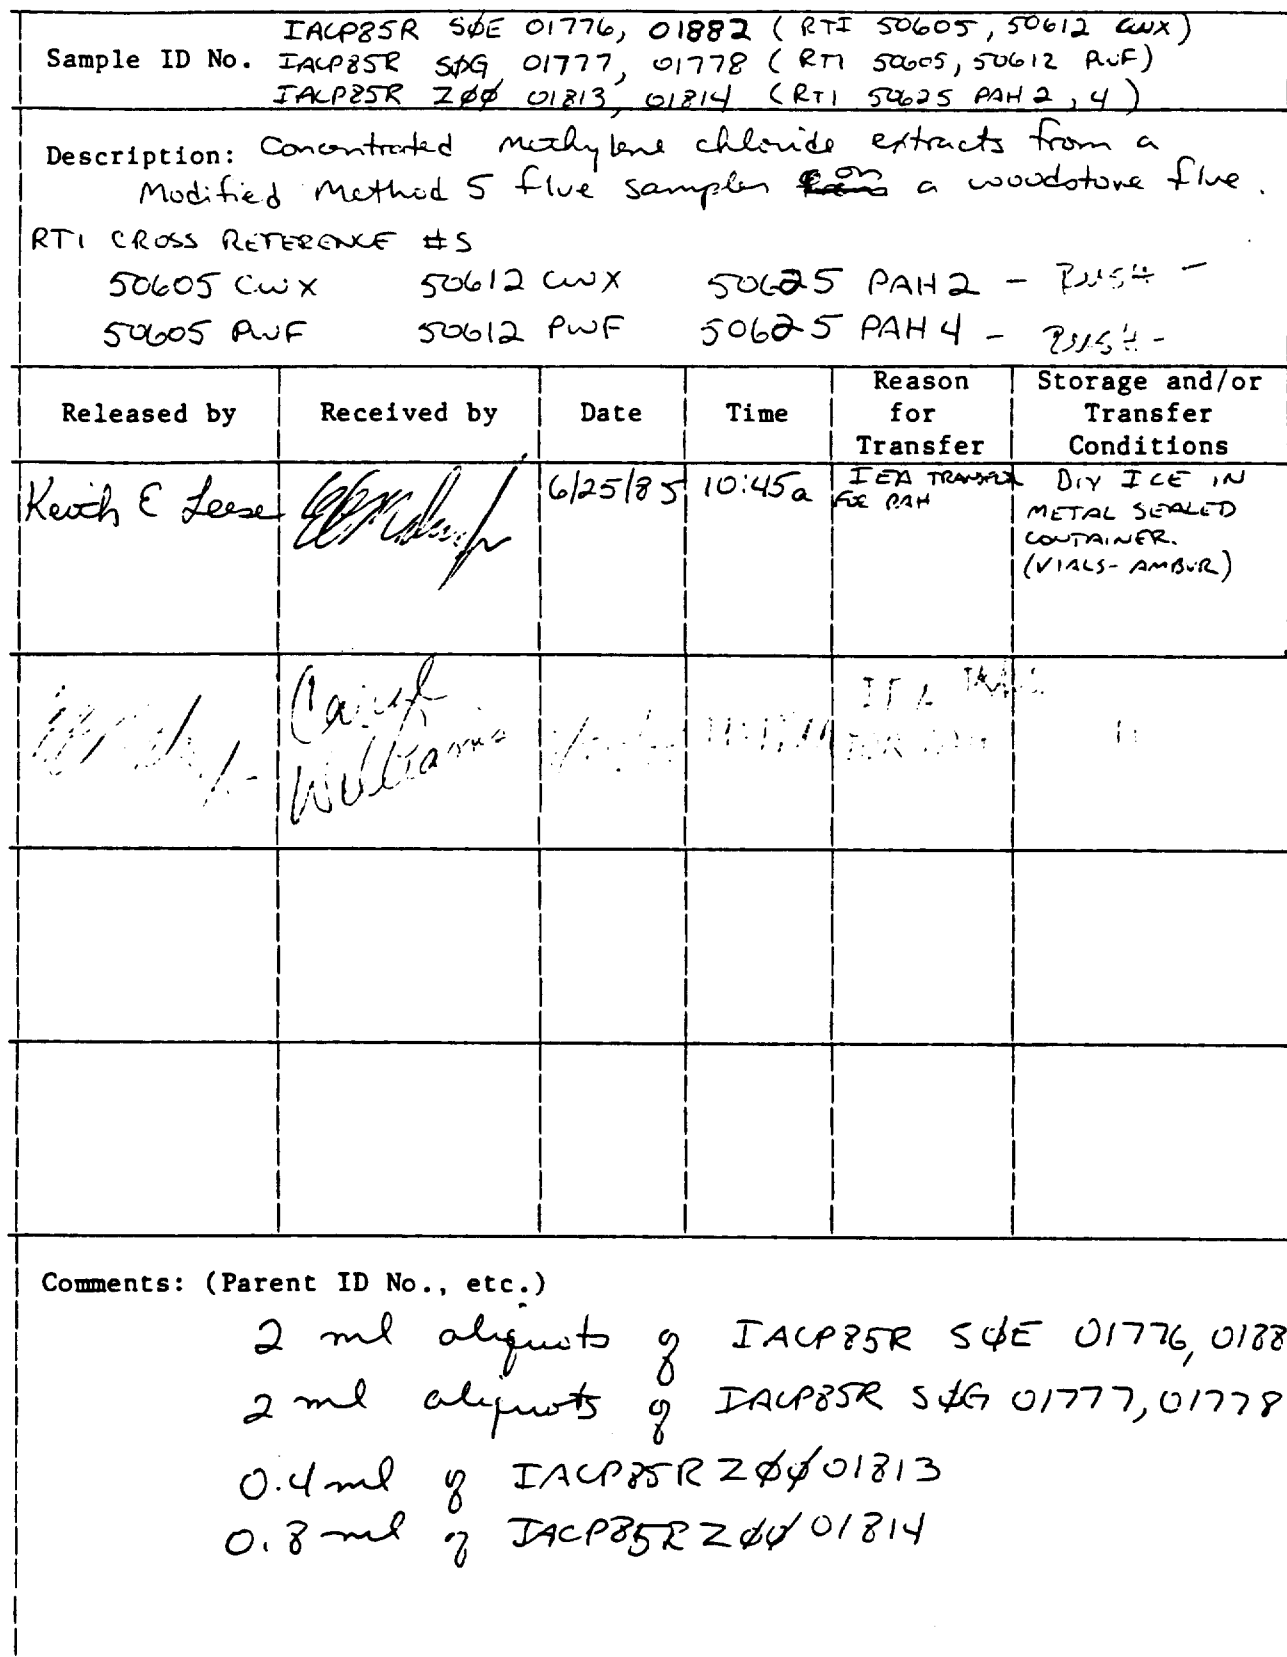 IACP85R SØE 01776, 01882 (RTI 50605, 50612 CWX)
Sample ID No. IACP85R SØG 01777, 01778 (RTI 50605, 50612 PWF)
IACP85R ZØØ 01813, 01814 (RTI 50625 PAH 2, 4)
Description: Concentrated methylene chloride extracts from a
Modified Method 5 flue sampler on a woodstove flue.
RTI CROSS REFERENCE #S
50605 CWX 50612 CWX 50625 PAH 2 - RUSH -
50605 PWF 50612 PWF 50625 PAH 4 - RUSH -
Released by Received by Date Time Reason for Transfer Storage and/or Transfer Conditions
Keith E Leese 6/25/85 10:45a IEA TRANSFER FOR PAH DRY ICE IN
METAL SEALED
CONTAINER.
(VIALS- AMBUR)
Williams
Comments: (Parent ID No., etc.)
2 ml aliquots of IACP85R SØE 01776, 0188
2 ml aliquots of IACP85R SØG 01777, 01778
0.4 ml of IACP85R ZØØ 01813
0.8 ml of IACP85R ZØØ 01814